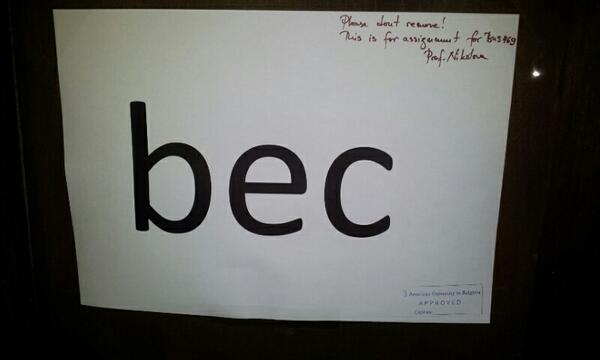 Please dont remove!
This is for assignment for BUS 469
Prof. Nikolova
bec
American University in Bulgaria
APPROVED